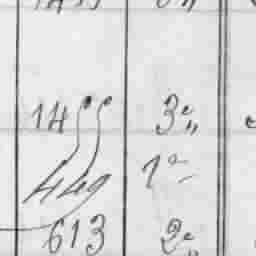 1455 3e„
449 1e
613 2e„